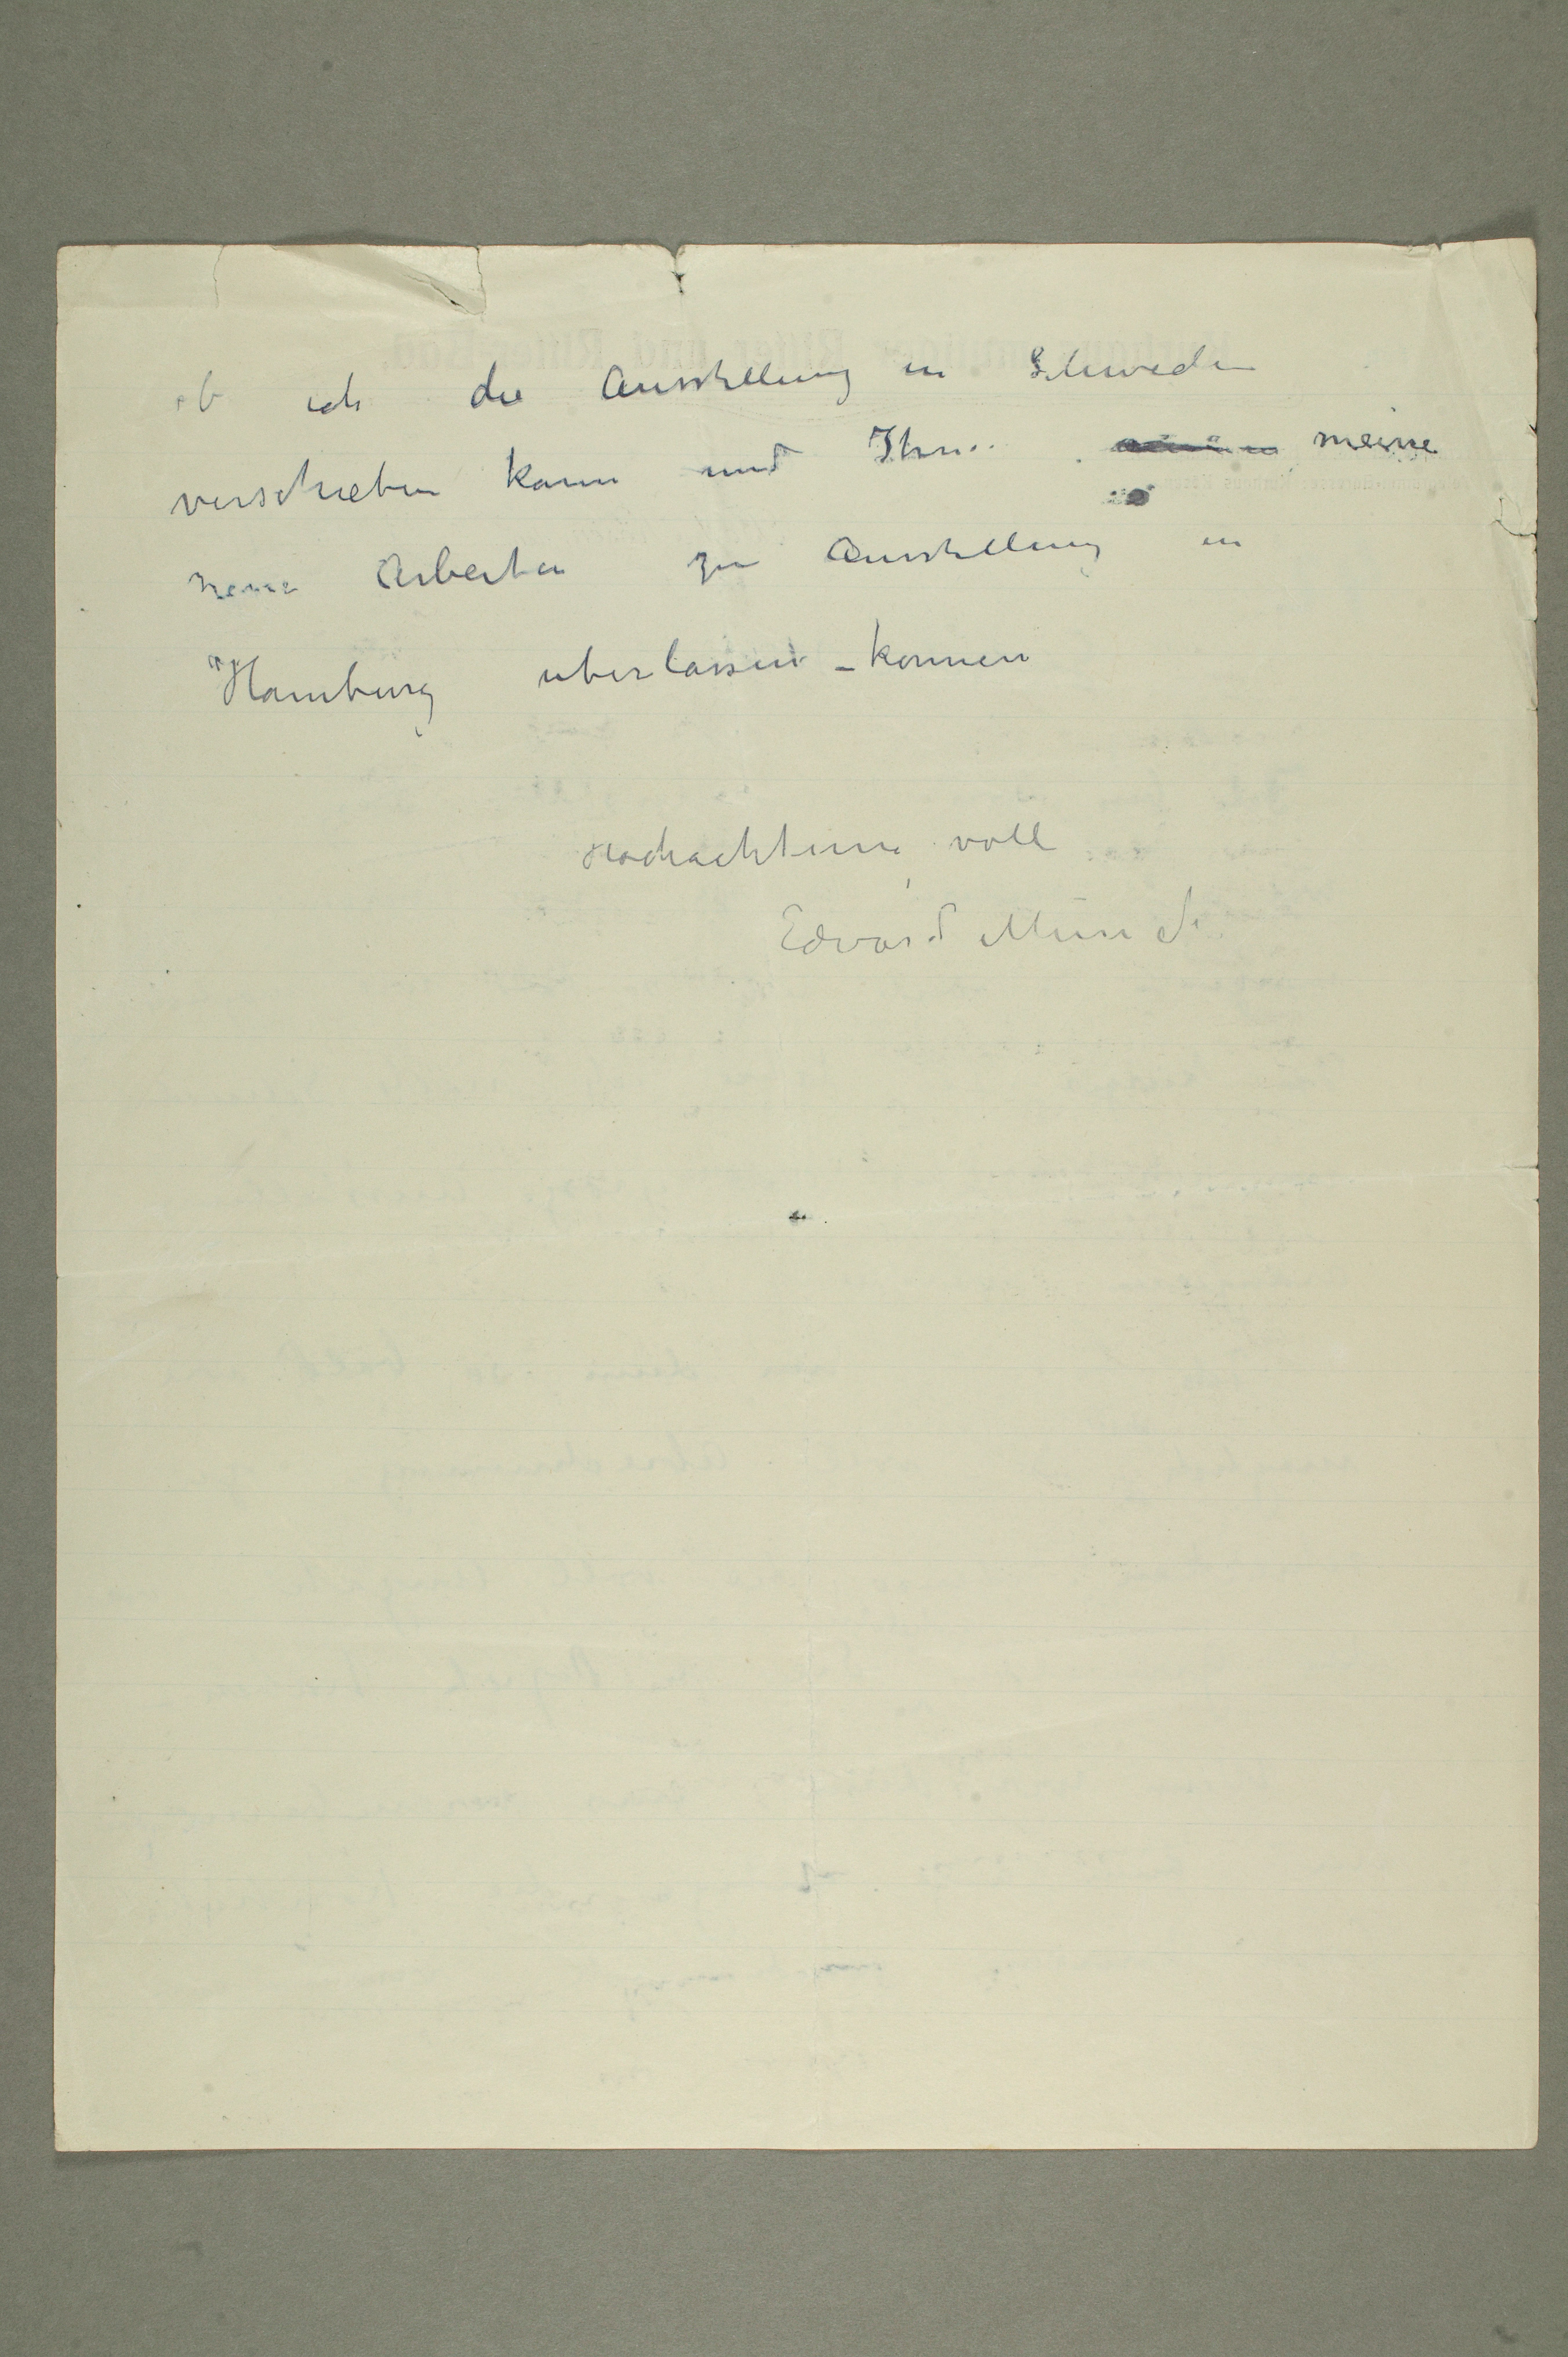 ob ich die Ausstellung in Schweden
verschieben kann und Ihnen meine
neue Arbeiten zu Ausstellung in
Hamburg uberlassen – konnen
Hochachtung voll
Edvard Munch